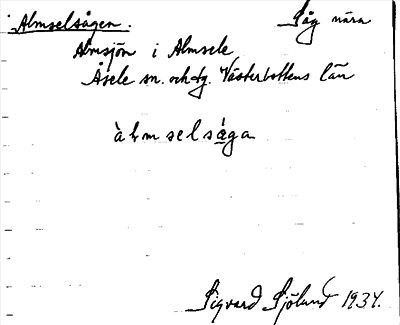 Almselsågen. Såg nära
Almsjön i Almsele
Åsele sn. och tg. Västerbottens län
àlmselsága
Sigvard Sjölund 1934.